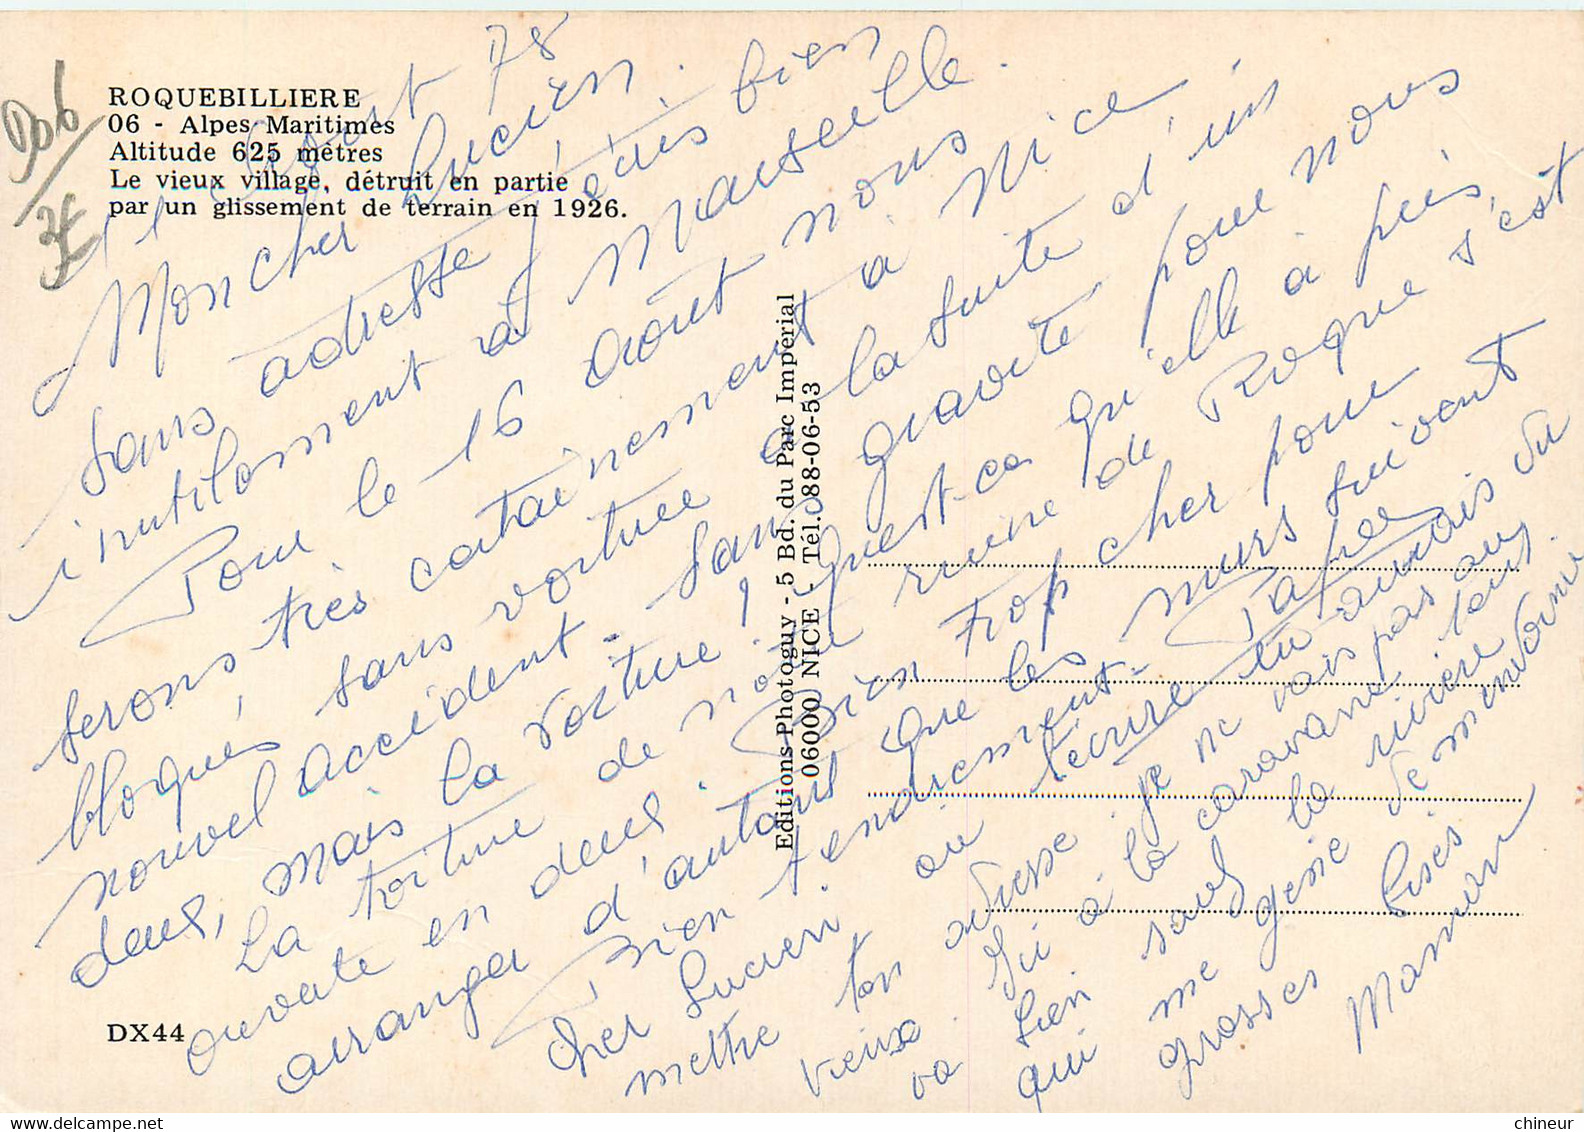 906
3€
ROQUEBILLIERE
06 - Alpes Maritimes
Altitude 625 mètres
Le vieux village, détruit en partie
par un glissement de terrain en 1926.
11 Août 78
Mon cher Lucien.
Sans adresse, j'écris bien
inutilement à Marseille.
Pour le 16 août nous nous
serons très certainement à Nice
bloqués, sans voiture à la suite d'un
nouvel accident. Sans gravité pour nous
deux, mais la voiture! Qu'est-ce qu'elle a pris,
La toiture de notre ruine de Roque s'est
ouverte en deux. Bien trop cher pour
arranger d'autant que les murs suivent
Bien tendrement.
Cher Lucien. ou écrire tu aurais du
mettre ton adresse. je ne vais pas au
vieux. Ici à la caravane tous
va bien sauf la rivière
qui me gène de m'endormir
grosses bises
Maman
Editions Photoguy - 5 Bd. du Parc Impérial
06000 NICE - Tél. 88-06-53
DX44
chineur